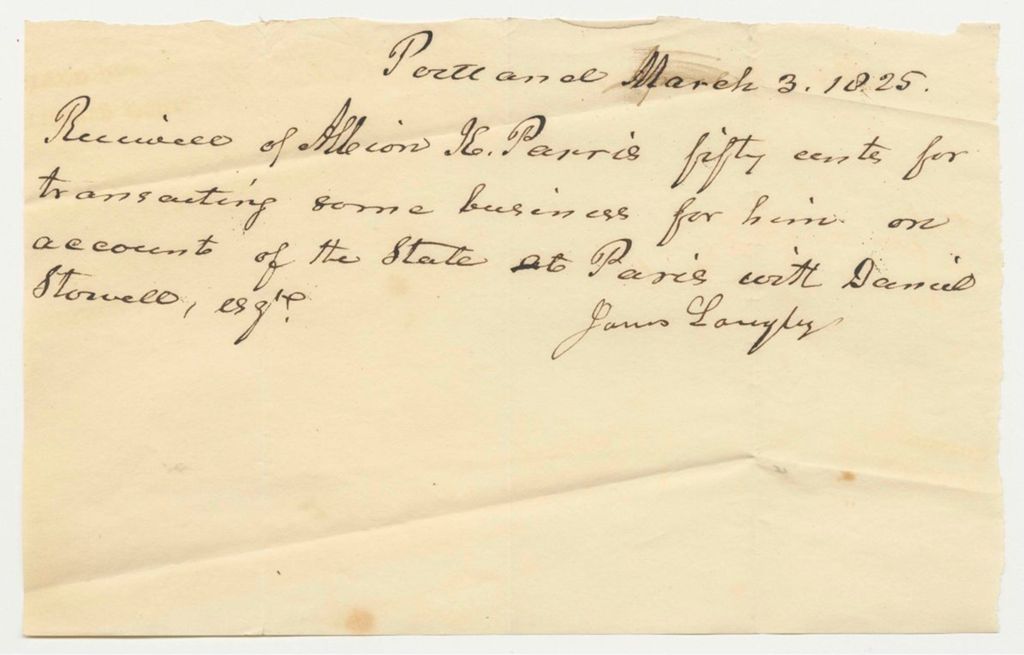 Portland March 3. 1825.
Received of Albion K. Parris fifty cents for
transacting some business for him on
account of the State at Paris with Daniel
Stowell, esqre.
James Longley